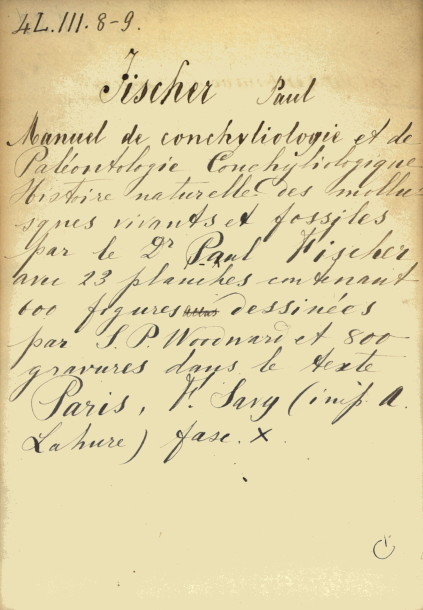 4L.III.8-9.
Fischer Paul
Manuel de conchyliologie et de
Paléontologie Conchyliologique
Histoire naturelle des mollu-
sques vivants et fossiles
par le Dr Paul Fischer
avec 23 planches contenant
600 figures dessinées
par S. P. Woodward et 800
gravures dans le texte
Paris, F. Savy (imp. A.
Lahure) fasc. X.